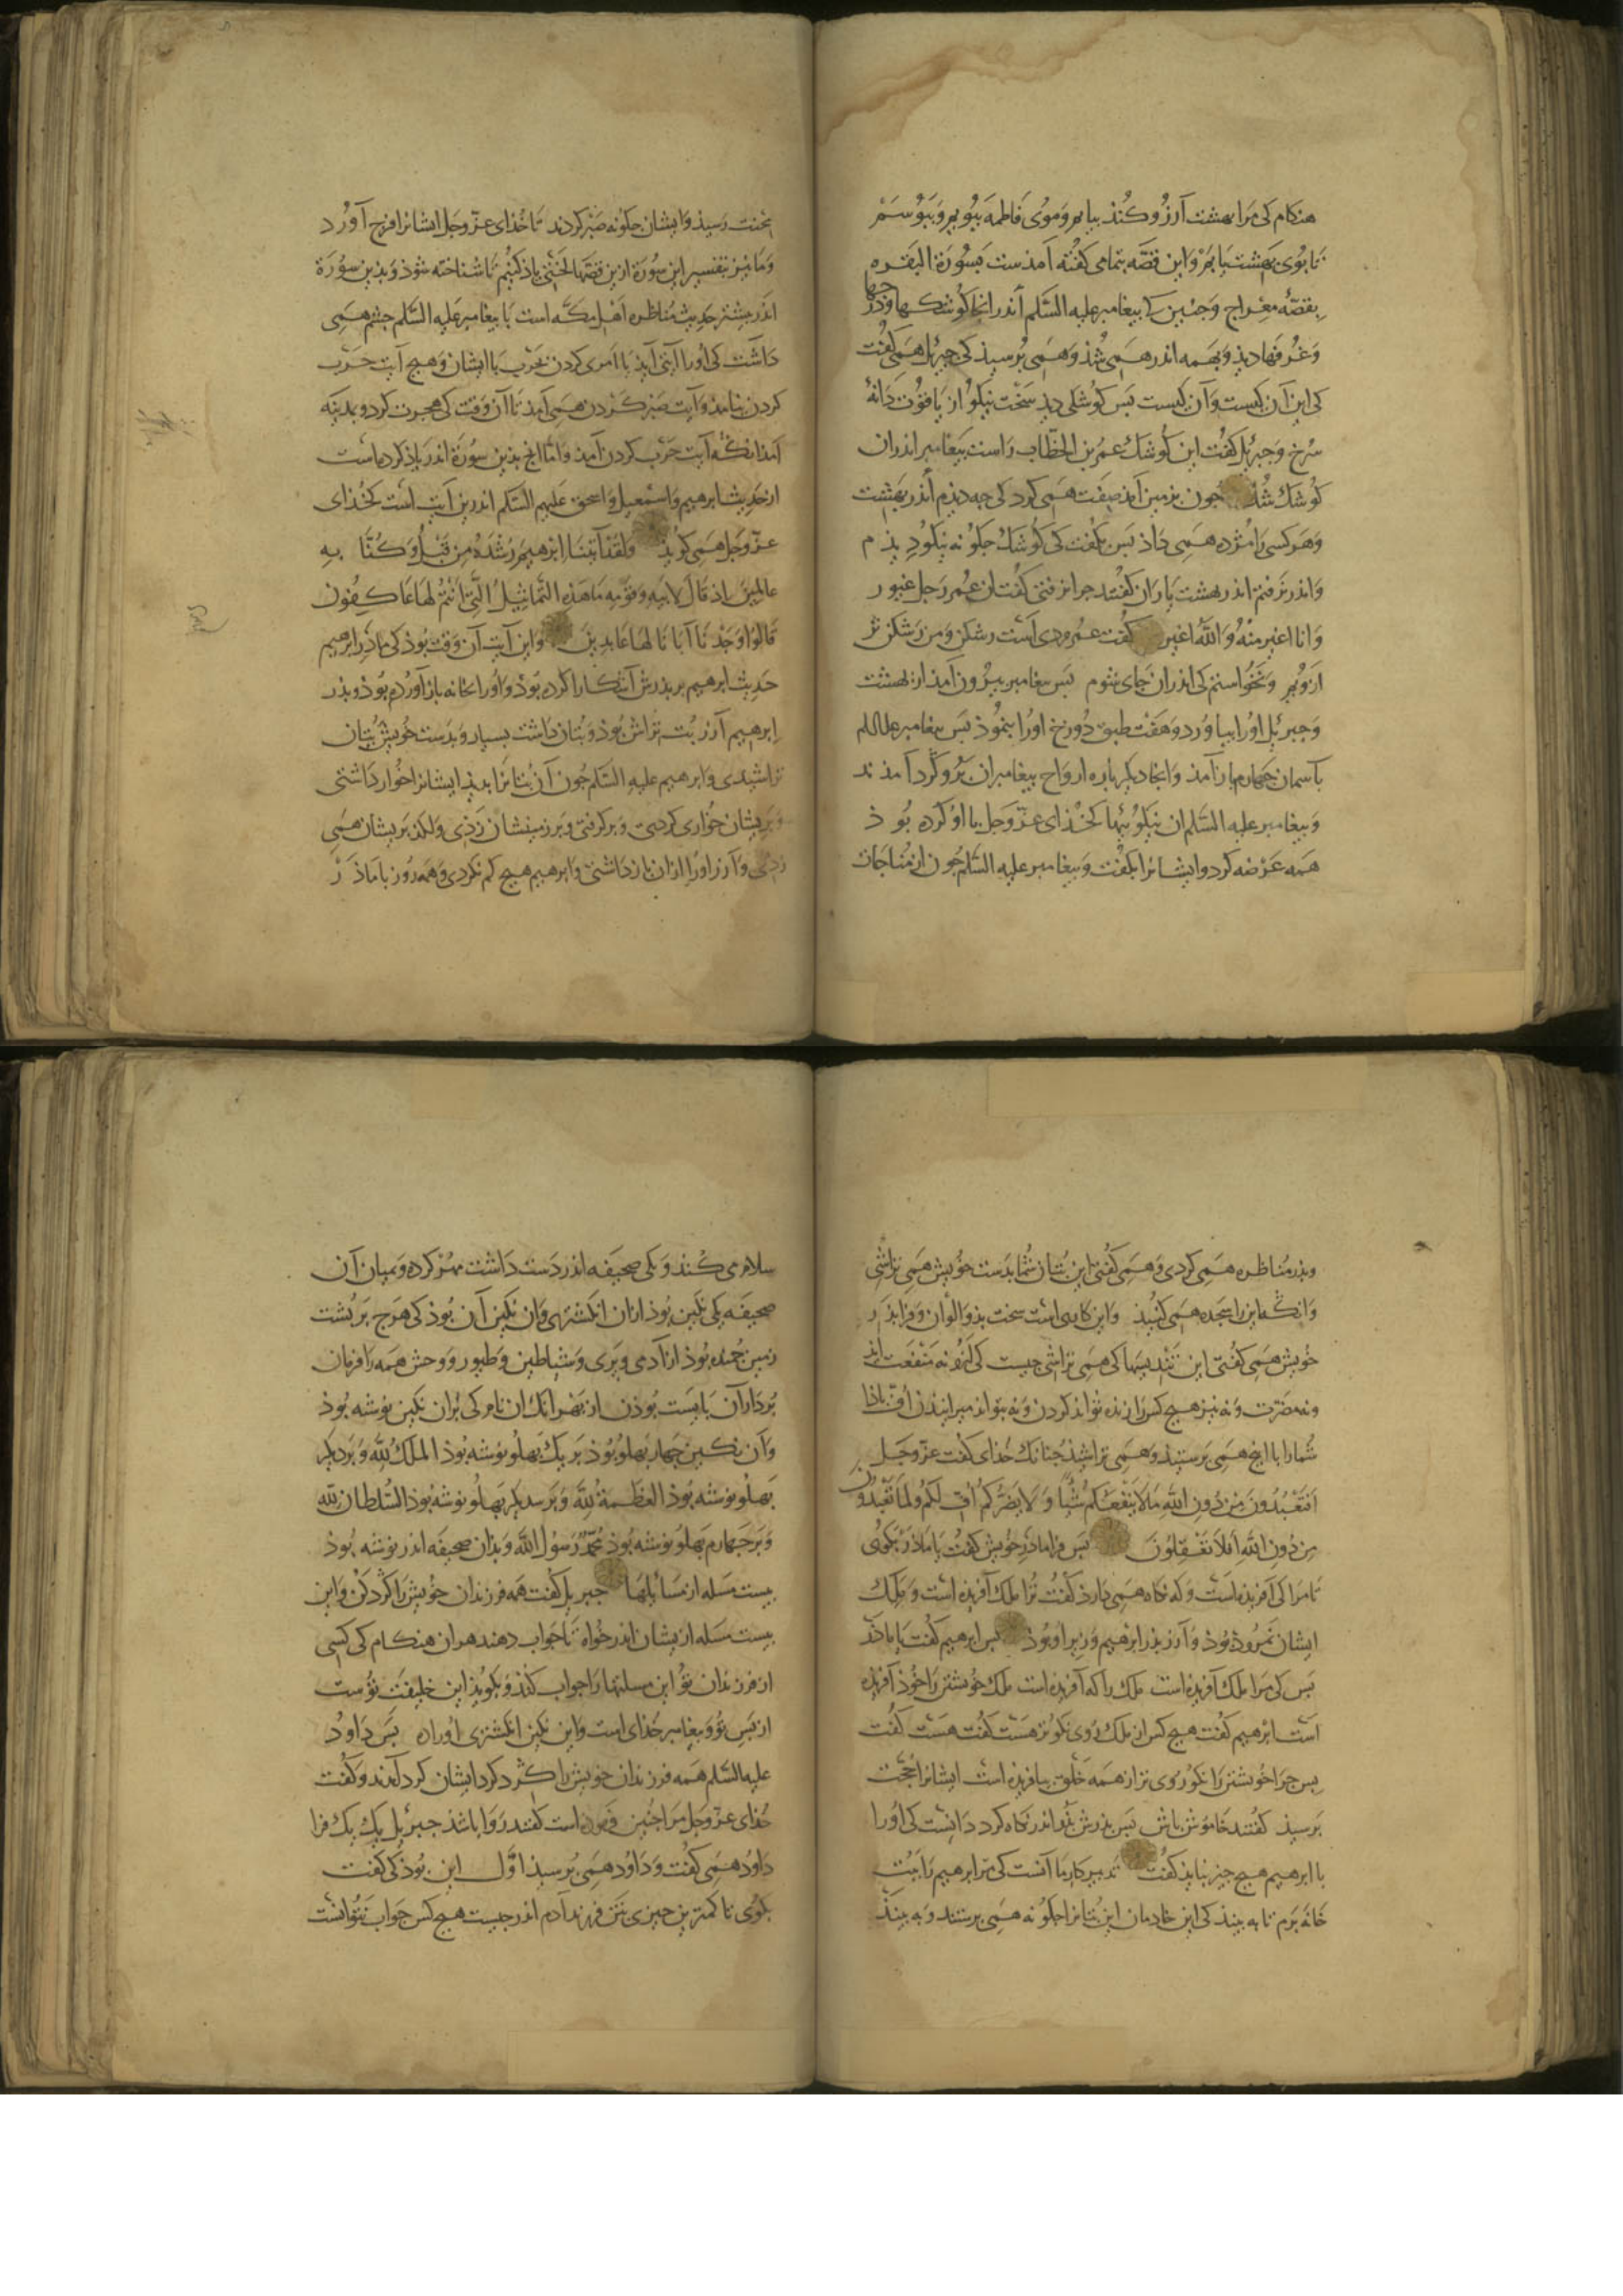 هنکام کی مرا بهشت آرزو کند بیایم و موی فاطمه ببویم و ببوسم
تا بوی بهشت یابم و این قصّه بتمامی کفته آمذست بسورة البقره
بقصّهٔ معراج و جنین کی بیغامبر علیه السّلم اندر انجا کوشکها و درجها
و غرفها دیذ و بهمه اندر همی شذ و همی برسیذ کی جبرئل همی کفت
کی این آن کیست و آن آن کیست بس کوشکی دیذ سخت نیکو از یاقوت دانهٔ
سرخ و جبرئل کفت این کوشک عمر بن الخطّاب راست بیغامبر اندران
کوشک شذ جون بزمین آمذ صفت همی کرد کی جه دیذم اندر بهشت
و هر کسی را مژده همی داذ بس بکفت کی کوشک جکونه نیکو دیذم
و اندر نرفتم اندر بهشت یاران کفتند جرا نرفتی کفت ان عمر رجل غیور
و انا اغیر منه و الله اغیر کفت عمر مردی است رشکن و من رشکن تر
ازو بم و نخواستم کی اندران جای شوم بس بیغامبر بیرون آمذ از بهشت
و جبرئل اورا بیاورد و هفت طبق دوزخ اورا بنموذ بس بیغامبر علیه السلم
بآسمان جهارم باز آمذ و انجا دیکر باره ارواح بیغامبران برو کرد آمذند
و بیغامبر علیه السّلم ان نیکوئیها کخذای عزّ و جل با او کرده بوذ
همه عرضه کرد و ایشانرا بکفت و بیغامبر علیه السّلم جون از مناجات
بحنت رسیذ و ایشان جکونه صبر کردند تا خذای عزّ و جل ایشانرا فرج آورد
و ما نیز بتفسیر این سورة ازین قصّها لختی یاذ کنیم تا شناخته شوذ و بذین سورة
اندر بیشتر حدیث مناظره اهل مکّه است با بیغامبر علیه السّلم جشم همی
داشت کی اورا آیتی آیذ با امری کردن بحرب با ایشان و هیج آیت حرب
کردن نیامذ و آیت صبر کردن همی آمذ تا آن وقت کی هجرت کرد و بمدینه
آمذ انکه آیت حرب کردن آمذ و اما انج بذین سورة اندر یاذ کرده است
از حدیث ابرهیم و اسمعیل و اسحق علیهم السّلم اندرین آیت است کخذای
عزّ و جل همی کویذ ولقد آتینا ابرهیم رشده من قبل و کنّا به
عالمین اذ قال لابیه و قومه ما هذه التماثیل الّتی انتم لها عاکفون
قالوا وجدنا آبانا لها عابدین و این آیت آن وقت بوذ کی ماذر ابرهیم
حدیث ابرهیم بر بذرش آشکارا کرده بوذ و اورا بخانه باز آورده بوذ و بذر
ابرهیم آزر بت تراش بوذ و بتان داشت بسیار و بدست خویش بتان
تراشیدی و ابرهیم علیه السّلم جون آن بتانرا بدیذ ایشانرا خوار داشتی
و بریشان خواری کردی و برکرفتی و بر زمینشان زدی و لکذ بریشان همی
زدی و آزر اورا ازان باز داشتی و ابرهیم هیج کم نکردی و همه روز با ماذر
و بذر مناظره همی کردی و همی کفتی این بتان شما بدست خویش همی تراشی
و انکه این را سجده همی کنیذ و این کاری است سخت بذ و الوان و فرا بذر
خویش همی کفتی این تندیسها کی همی تراشی جیست کی ازو نه منفعت اید
و نه مضرّت و نه نیز هیج کس را زنده تواند کردن و نه تواند میرانیدن اف باذا
شمارا با انج همی برستید و همی تراشید جنانک خذای کفت عزّ و جل
اتعبدون من دون الله ما لا ینفعکم شیا و لا یضرکم اف لکم ولما تعبدون
من دون الله افلا تعقلون بس فرا ماذر خویش کفت یا ماذر بکوی
تا مرا کی آفریذه است و که نکاه همی دارد کفت ترا ملک آفریذه است و ملک
ایشان نمروذ بوذ و آزر بذر ابرهیم وزیر او بوذ بس ابرهیم کفت یا ماذر
بس کی مرا ملک آفریذه است ملک را که آفریذه است ملک خویشتن را خوذ آفریذه
است ابرهیم کفت هیج کس از ملک روی نکوتر هست کفت هست کفت
بس جرا خویشتن را نکو روی تر از همه خلق نیافریذه است ایشانرا حجّت
برسیذ کفتند خاموش باش بس بذرش بذو اندر نکاه کرد دانست کی اورا
با ابرهیم هیج جیز نیایذ کفت تدبیر کار ما آنست کی مر ابرهیم را ببت
خانه برم تا به بینذ کی این خادمان این بتانرا جکونه همی برستند و به بینذ
سلام می کند و یکی صحیفه اندر دست داشت مهر کرده و میان آن
صحیفه یکی نکین بوذ ازان انکشتری وان نکین آن بوذ کی هرج بر بشت
زمین جنبده بوذ از آدمی و بری و شیاطین و طیور و وحش همه را فرمان
بردار آن بایست بوذن از بهر انک ان نام کی بران نکین نوشته بوذ
و آن نکین جهار بهلو بوذ بر یک بهلو نوشته بوذ الملک لله و بر دیکر
بهلو نوشته بوذ العظمة لله و بر سدیکر بهلو نوشته بوذ السّلطان لله
و بر جهارم بهلو نوشته بوذ محمّد رسول الله و بذان صحیفه اندر نوشته بوذ
بیست مسله از مسائلها جبریل کفت همه فرزندان خویش را کرد کن و این
بیست مسله ازیشان اندر خواه تا جواب دهند هران هنکام کی کسی
از فرزندان تو این مسلتها را جواب کند و بکویذ این خلیفت توست
از بس تو و بیغامبر خذای است و این نکین انکشتری اوراه بس داود
علیه السّلم همه فرزندان خویش را کرد کرد ایشان کرد آمدند و کفت
خذای عزّ و جل مرا جنین فرموده است کفتند روا باشذ جبرئل یک یک فرا
داود همی کفت و داود همی برسیذ اوّل این بوذ کی کفت
بکوی تا کمترین جیزی بتن فرزند آدم اندر جیست هیج کس جواب نتوانست